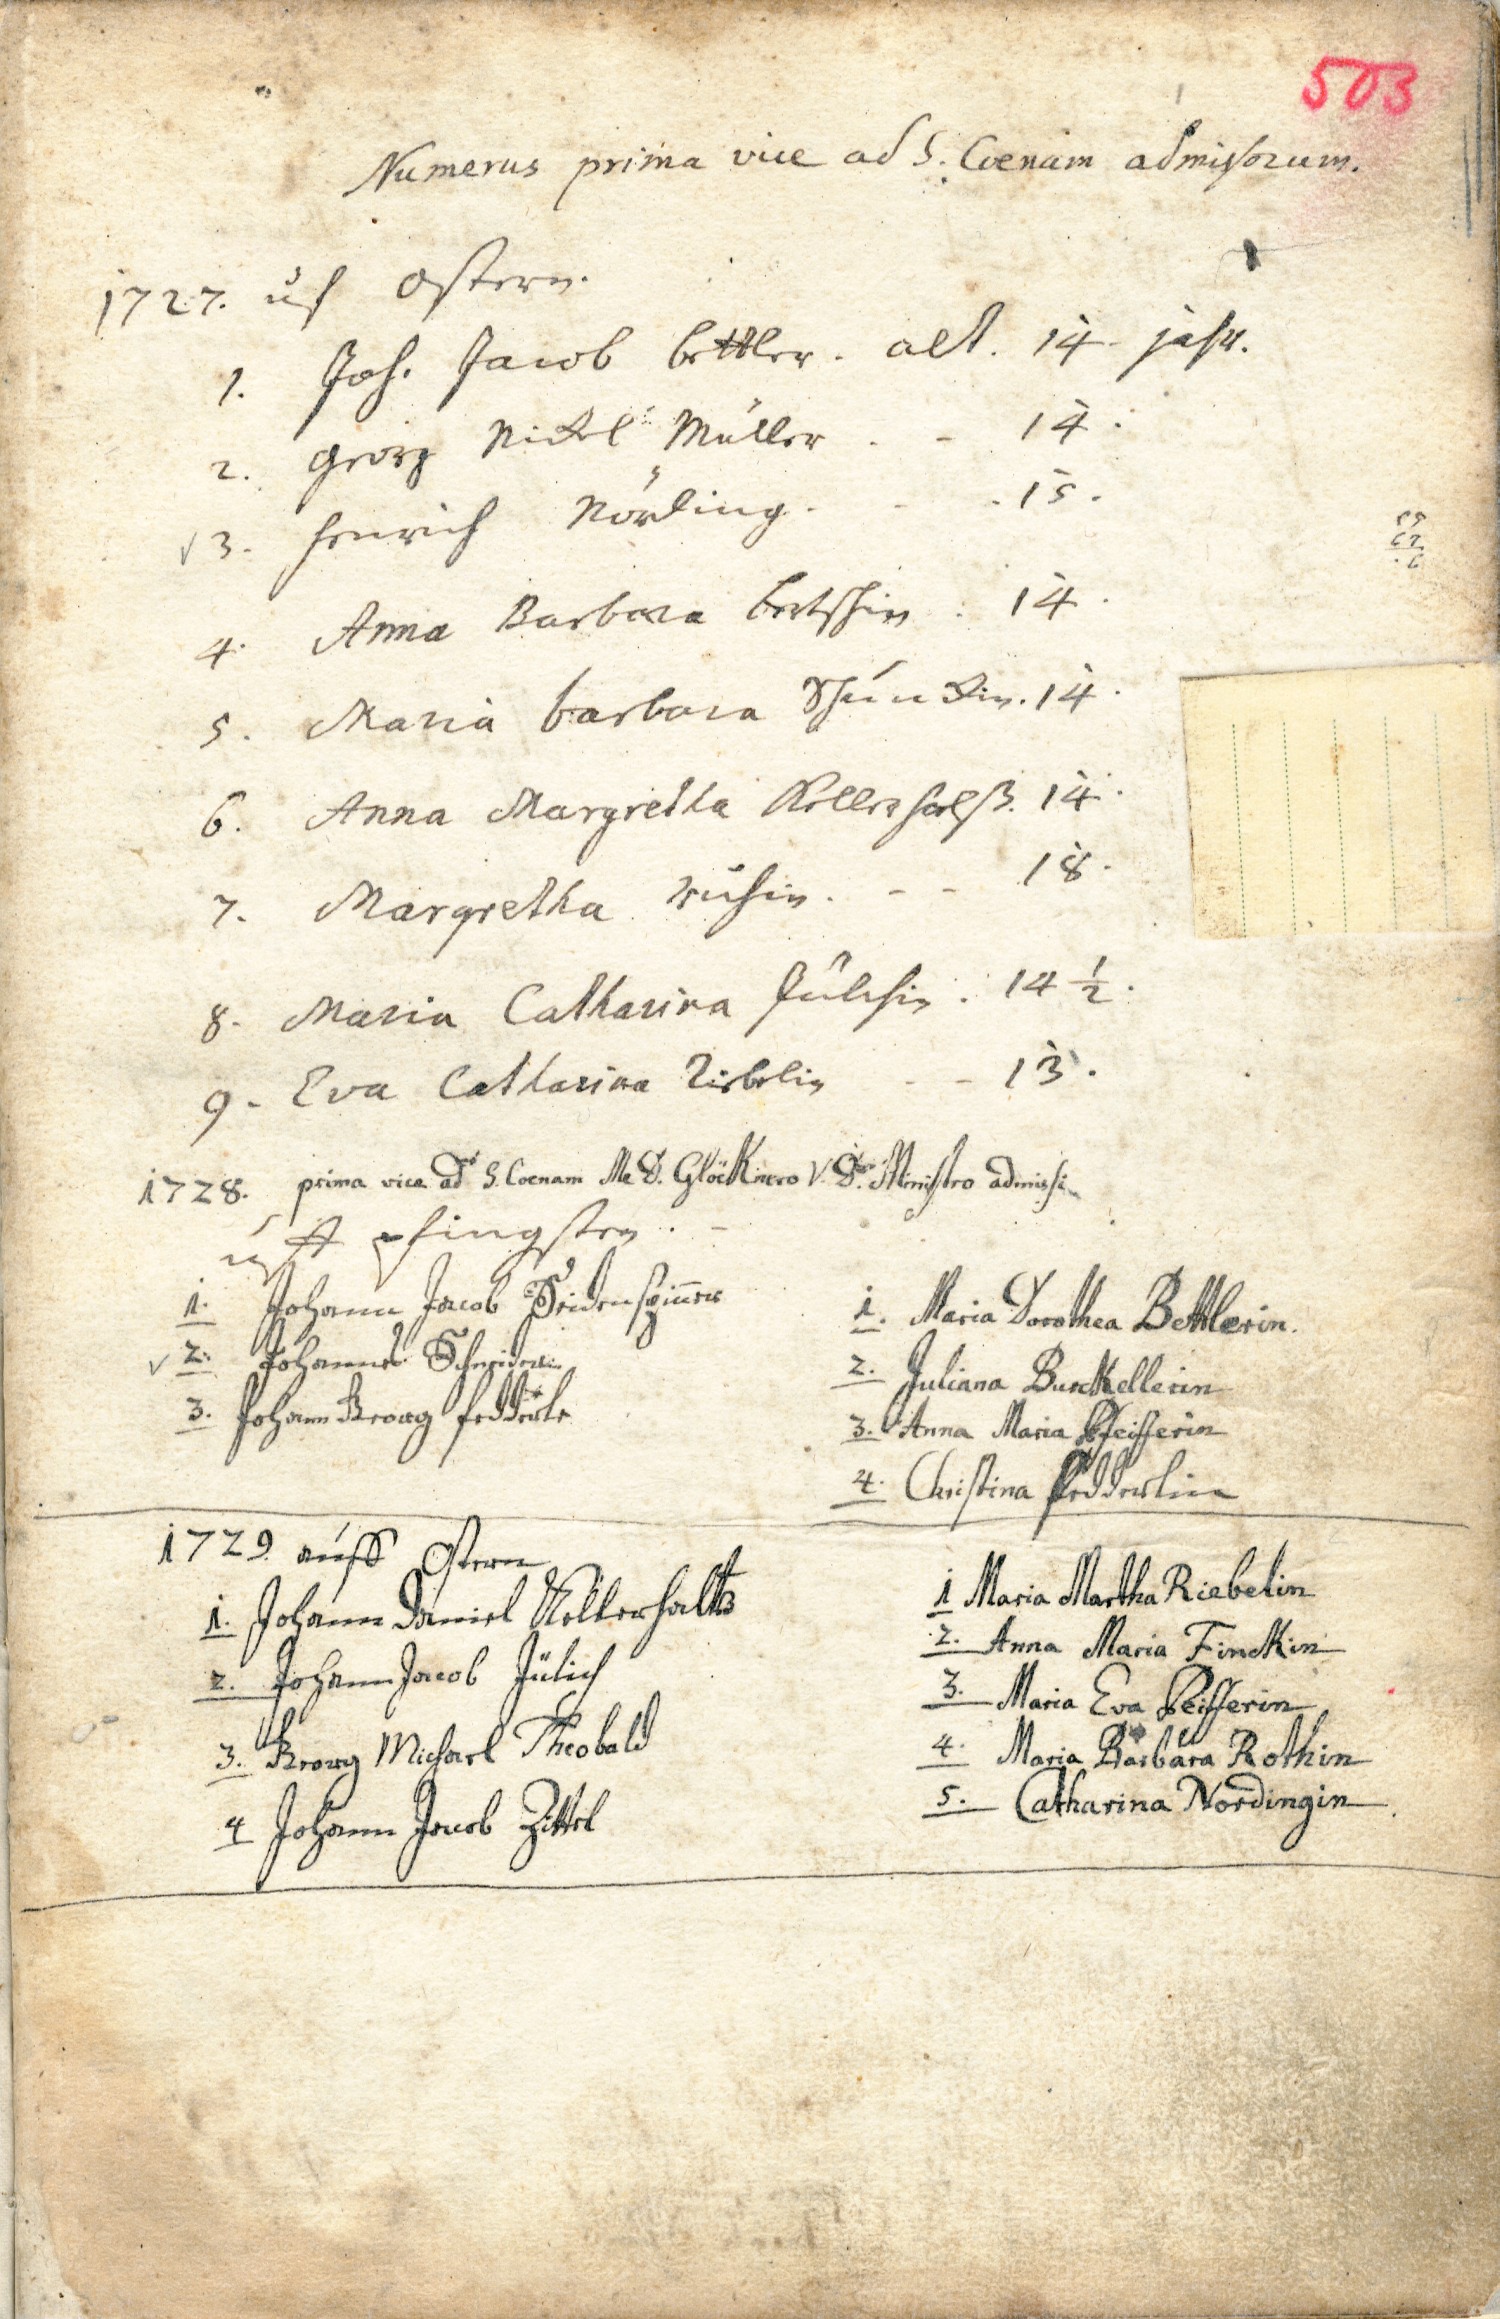 503
Numerus prima vice ad S. Coenam admissorum.
1727. uf Ostern.
1. Joh. Jacob bettler. alt. 14 jahr.
2. Georg Nickel Müller . - 14.
3. Henrich Nörding. - . 15.
4. Anna Barbara . 14.
5. Maria barbara . 14.
6. Anna Margretha Kellerhalß. 14.
7. Margretha . - - 18.
8. Maria Catharina . 14 1/2.
9. Eva Catharina Riebelin - - 13.
1728. prima vice ad S. Coenam Me D. Glöcknero V. D. Ministro admissi
uff pfingsten. -
1. Johann Jacob Seidenspinner
2. Johannes
3. Johann Georg fedderle
1. Maria Dorothea Bettlerin.
2. Juliana Burckellerin
3. Anna Maria Pfeifferin
4. Christina fedderlin
1729. auff Ostern
1. Johann Daniel Kellerhaltz
2. Johann Jacob Jülich
3. Georg Michael Theobald
4 Johann Jacob Zittel
1 Maria Martha Riebelin
2. Anna Maria Finckin
3. Maria Eva Peifferin
4. Maria Barbara Rothin
5. Catharina Nordingin